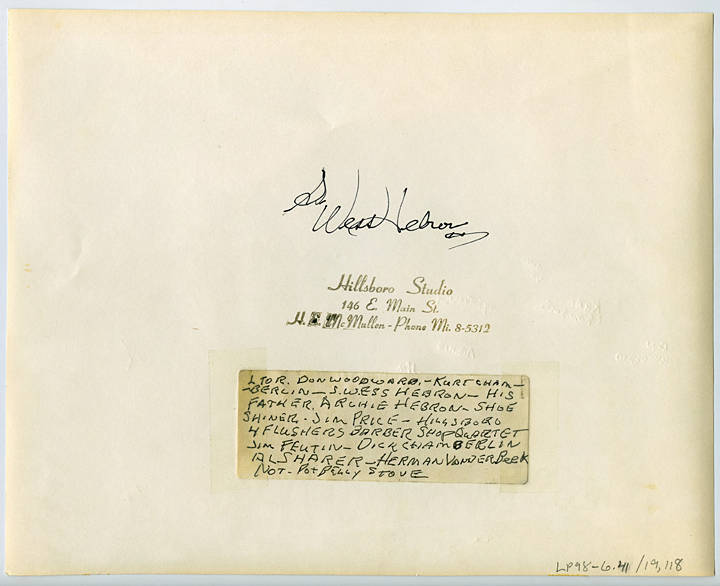 S. Wess Hebron
Hillsboro Studio
146 E. Main St.
H. E. McMullen - Phone Mi. 8-5312
L TOR. DON WOODWARD. - KURT CHAM-
-BERLIN - S. WESS HEBRON - HIS
FATHER, ARCHIE HEBRON - SHOE
SHINER - JIM PRICE - HILLSBORO
4 FLUSHERS BARBER SHOP QUARTET
JIM FEUTIN - DICK CHAMBERLIN
AL SHARER - HERMAN VANDERBEEK
NOT - POT BELLY STOVE
LP98-6.41/19,118